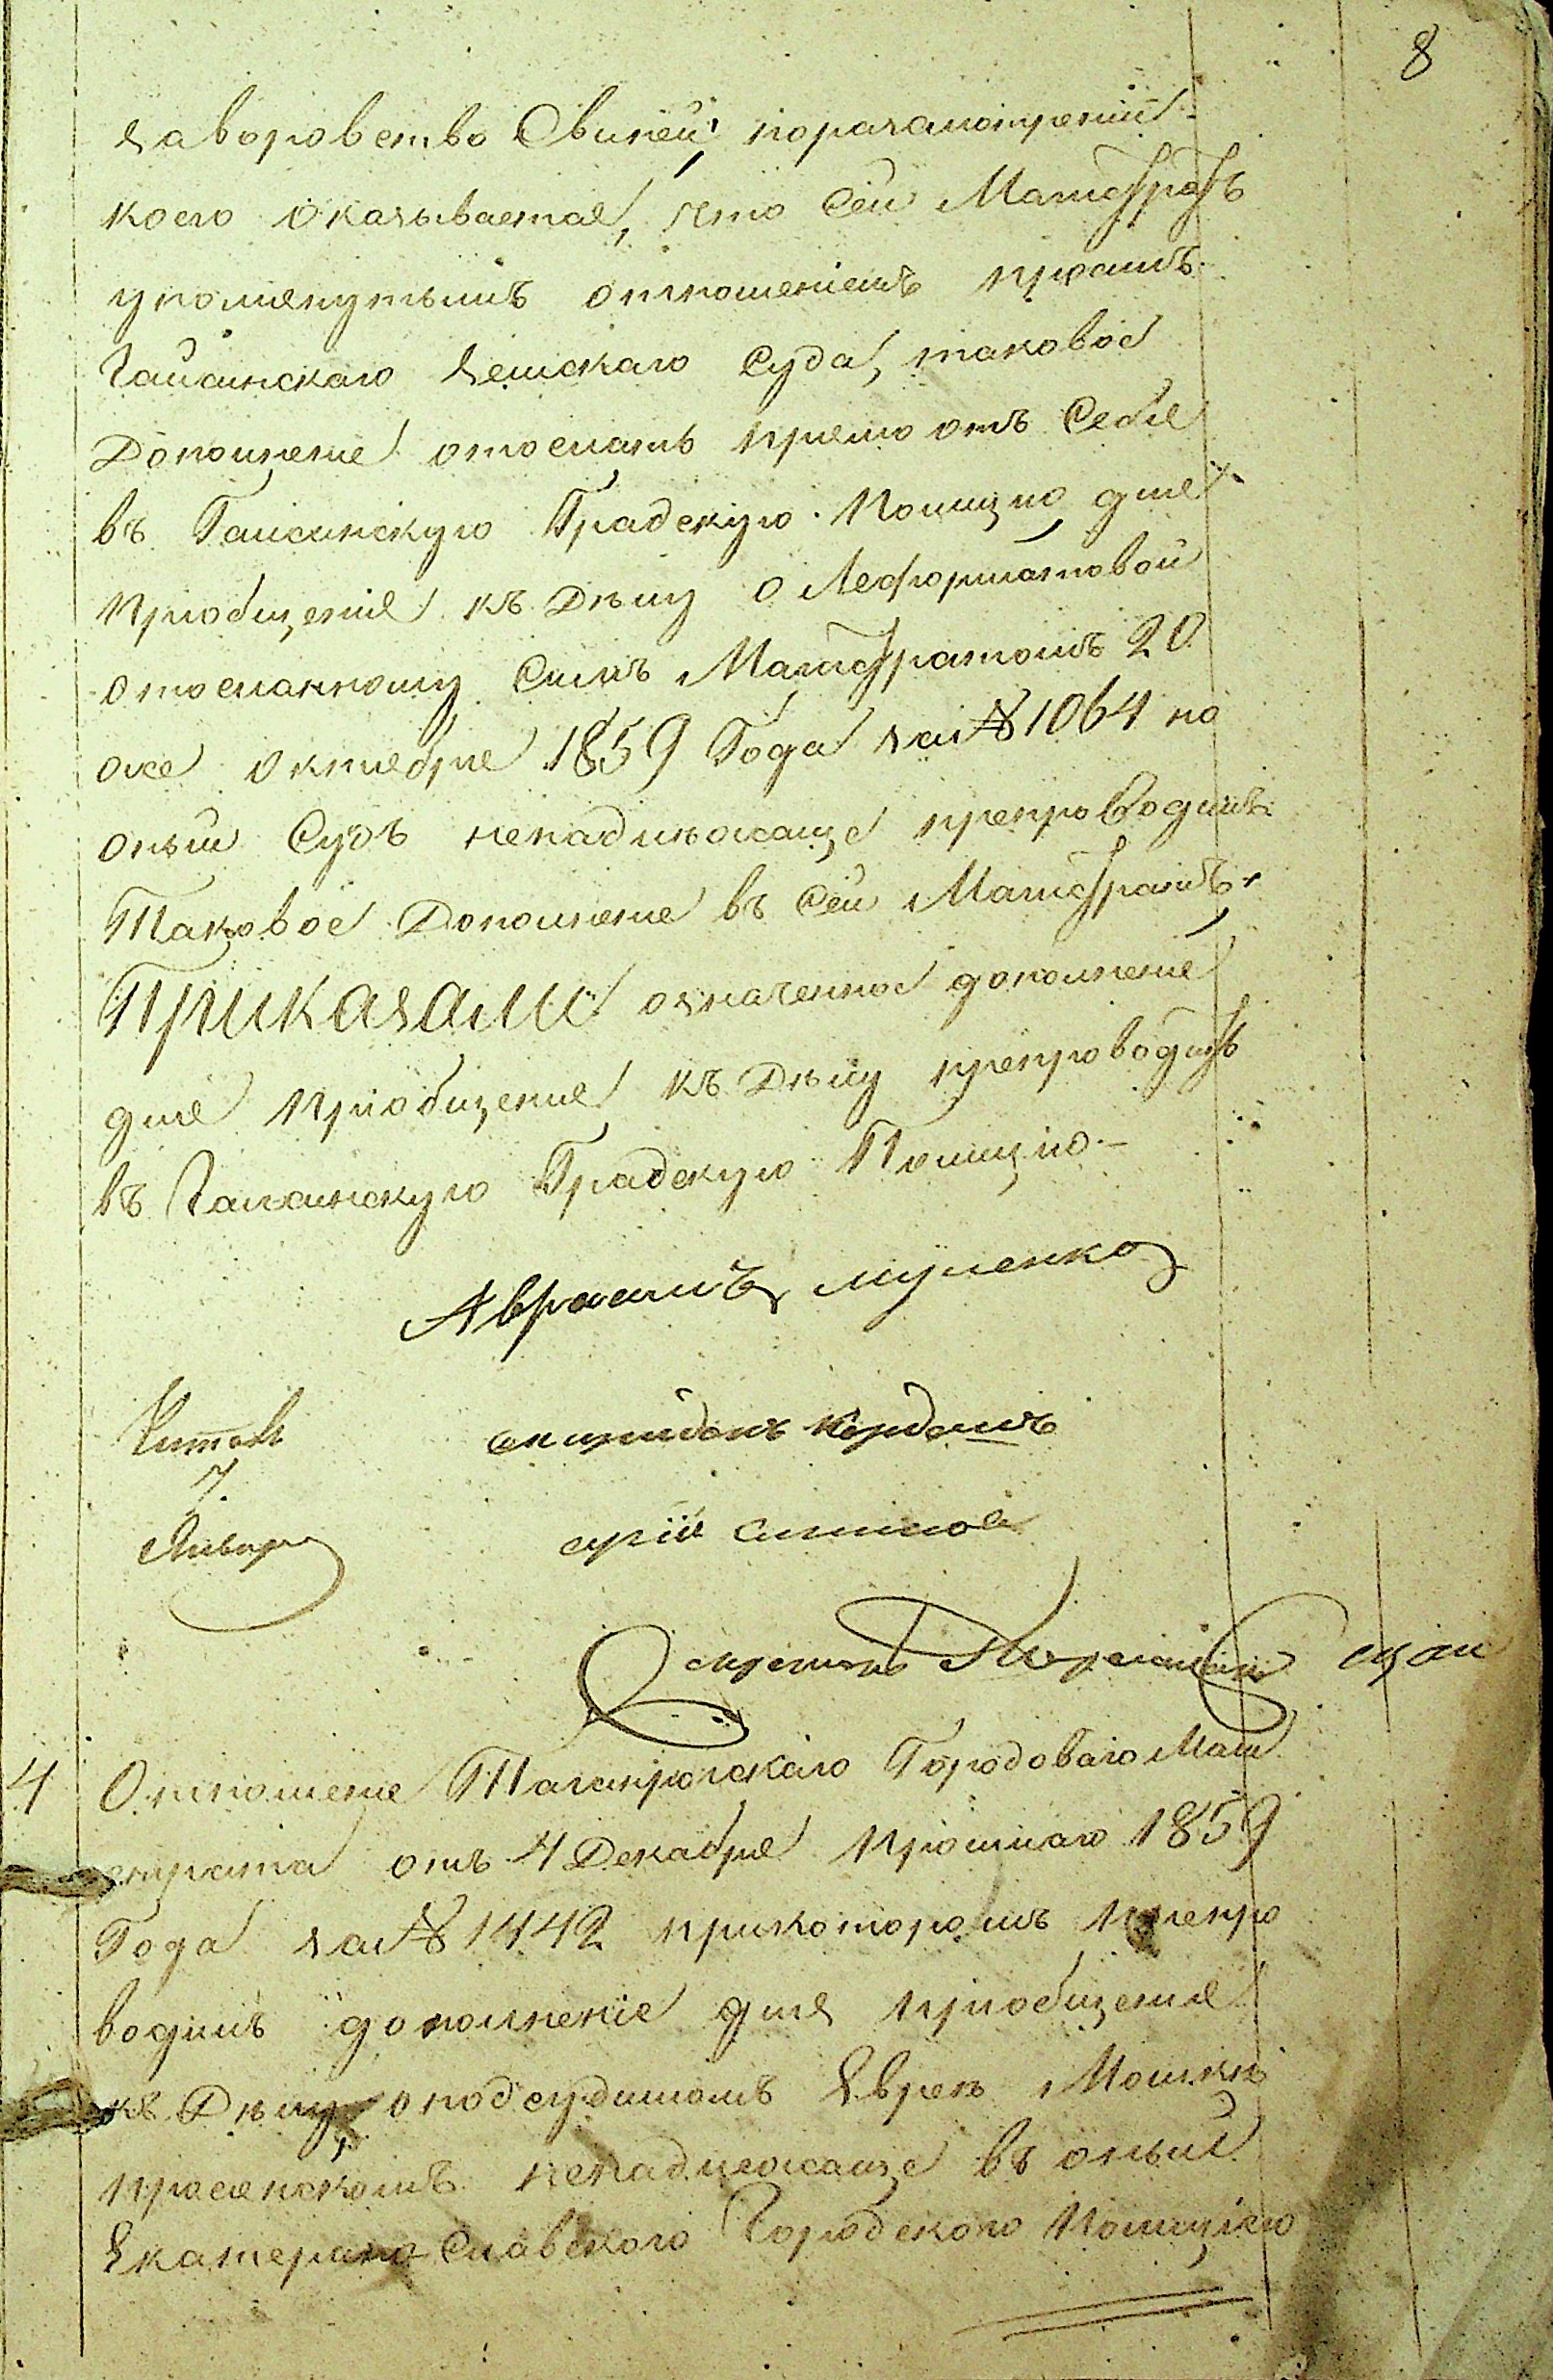 8
за воровство Свиней, поразсмотрении
коего оказывается, что Сей Магистратъ
упомянутымъ отношеніемъ просилъ
Гайсинскаго Земскаго Суда, таковое
Дополнение отослать прямо отъ Себя
въ Гайсинскую Градскую Полицию для
приобщения къ Делу о Лефортатовой
отосланному Симъ Магистратомъ 20
октября 1859 Года за № 1064 но
оный Судъ ненадлежаще препроводилъ
Таковое Дополнение въ Сей Магистратъ.
Приказали означенное дополнение
для приобщения къ Делу препроводить
въ Гайсинскую Градскую Полицію —
Авраамъ
Читалъ
7.
Января
Секретарь
4 Отношение Таганрогскаго Городоваго Маги
страта отъ 4 Декабря прошлаго 1859
Года за № 1442 прикоторомъ препро
водилъ дополненіе для приобщения
къ Делу, о подсудимомъ Еврее Мошке
ненадлежаще въ оный
Екатеринославского Городского Полицією